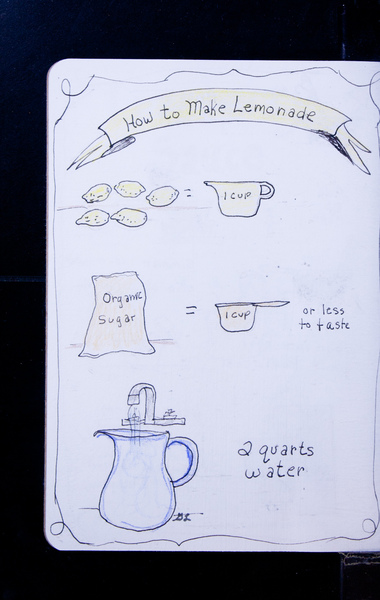 How to Make Lemonade
= 1 cup
Organic
Sugar
= 1 cup
or less
to taste
2 quarts
water